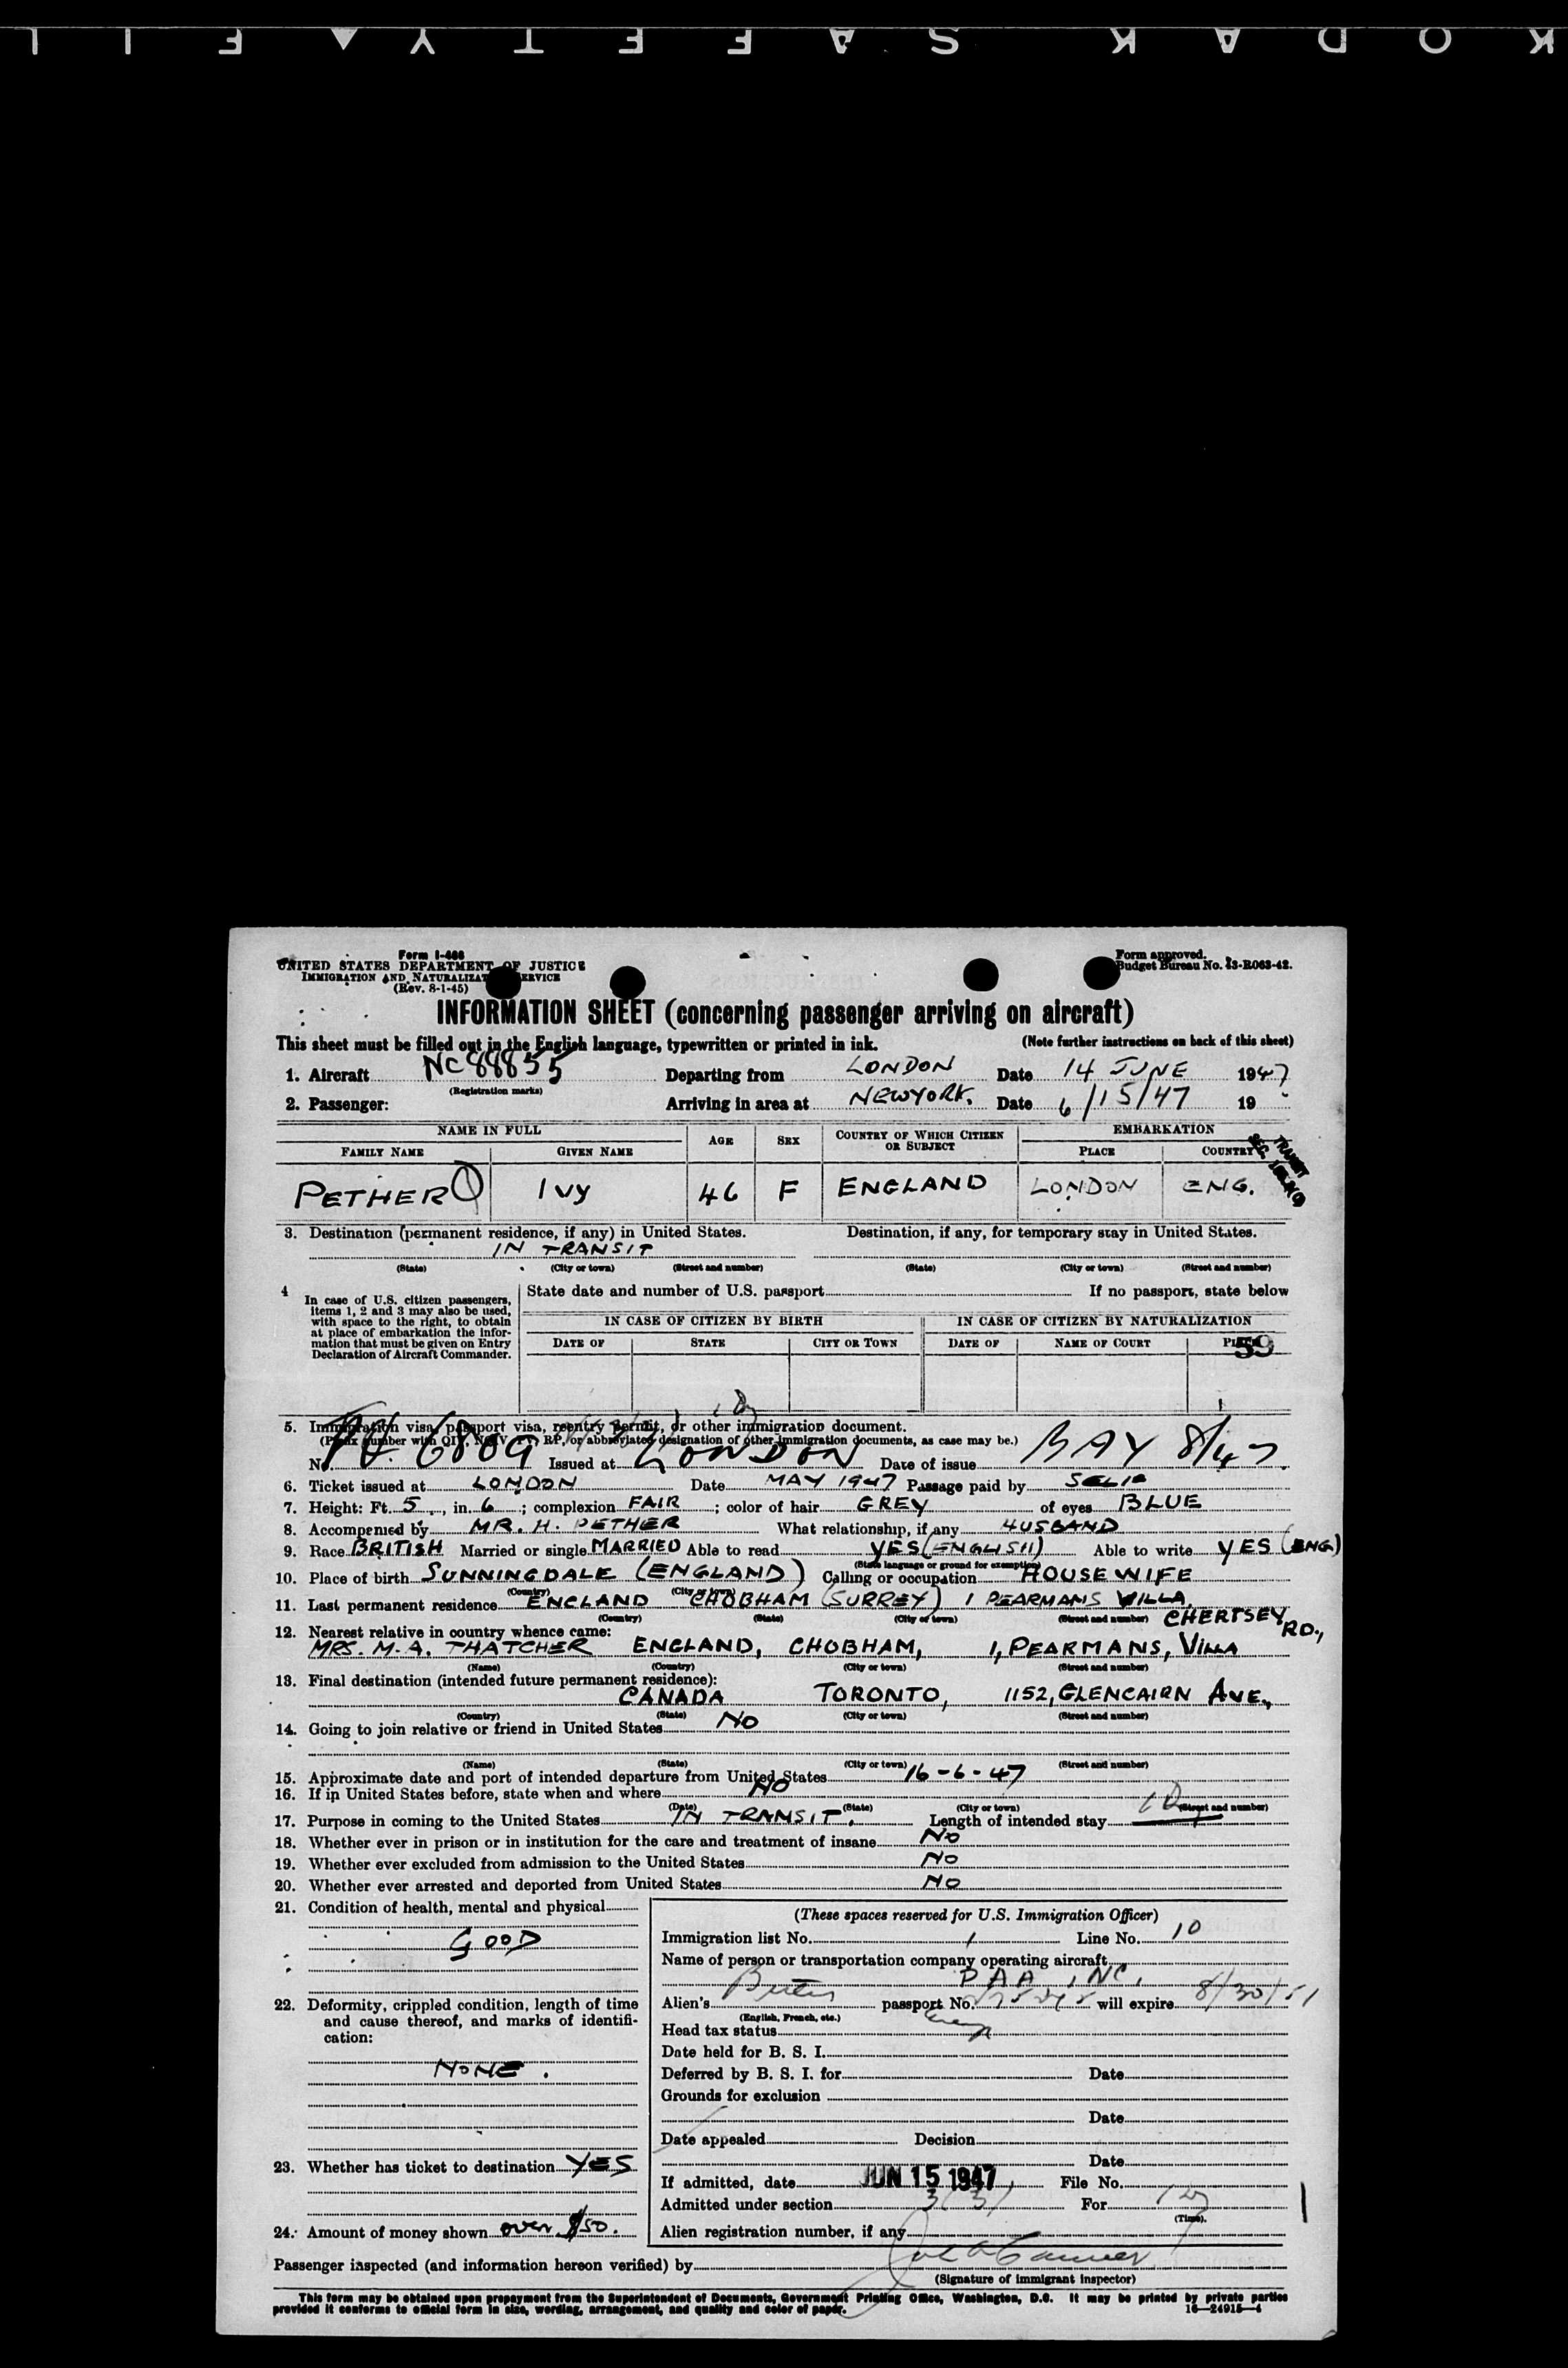 KODAK SAFETY FIL
Form I-466
UNITED STATES DEPARTMENT OF JUSTICE
IMMIGRATION AND NATURALIZATION SERVICE
(Rev. 8-1-45)
Form approved.
Budget Bureau No. 43-R063-42.
INFORMATION SHEET (concerning passenger arriving on aircraft)
This sheet must be filled out in the English language, typewritten or printed in ink. (Note further instructions on back of this sheet)
1. Aircraft NC88855 Departing from LONDON Date 14 JUNE 1947
(Registration marks)
2. Passenger: Arriving in area at NEWYORK. Date 6/15/47 19
NAME IN FULL AGE SEX COUNTRY OF WHICH CITIZEN OR SUBJECT EMBARKATION
FAMILY NAME GIVEN NAME PLACE COUNTRY
TRANSIT
PETHER IVY 46 F ENGLAND LONDON ENG.
3. Destination (permanent residence, if any) in United States. Destination, if any, for temporary stay in United States.
IN TRANSIT
(State) (City or town) (Street and number) (State) (City or town) (Street and number)
4 In case of U.S. citizen passengers, items 1, 2 and 3 may also be used, with space to the right, to obtain at place of embarkation the information that must be given on Entry Declaration of Aircraft Commander.
State date and number of U.S. passport If no passport, state below
IN CASE OF CITIZEN BY BIRTH IN CASE OF CITIZEN BY NATURALIZATION
DATE OF STATE CITY OR TOWN DATE OF NAME OF COURT PLACE
59
5. Immigration visa, passport visa, reentry permit, or other immigration document.
(Prefix number with QIV, NQIV, PV, RP, or abbreviated designation of other immigration documents, as case may be.)
No. 6809 Issued at LONDON Date of issue MAY 8/47.
6. Ticket issued at LONDON Date MAY 1947 Passage paid by SELF
7. Height: Ft. 5, in. 6; complexion FAIR; color of hair GREY of eyes BLUE
8. Accompanied by MR. H. PETHER What relationship, if any HUSBAND
9. Race BRITISH Married or single MARRIED Able to read YES (ENGLISH) Able to write YES (ENG)
(State language or ground for exemption)
10. Place of birth SUNNINGDALE (ENGLAND) Calling or occupation HOUSEWIFE
(Country) (City or town)
11. Last permanent residence ENGLAND CHOBHAM (SURREY) 1 PEARMANS VILLA, CHERTSEY RD.,
(Country) (State) (City or town) (Street and number)
12. Nearest relative in country whence came:
MRS. M.A. THATCHER ENGLAND, CHOBHAM, 1, PEARMANS, VILLA
(Name) (Country) (City or town) (Street and number)
13. Final destination (intended future permanent residence):
CANADA TORONTO, 1152, GLENCAIRN AVE.,
(Country) (State) (City or town) (Street and number)
14. Going to join relative or friend in United States NO
(Name) (State) (City or town) (Street and number)
15. Approximate date and port of intended departure from United States 16-6-47
16. If in United States before, state when and where NO
(Date) (State) (City or town) (Street and number)
17. Purpose in coming to the United States IN TRANSIT. Length of intended stay
18. Whether ever in prison or in institution for the care and treatment of insane NO
19. Whether ever excluded from admission to the United States NO
20. Whether ever arrested and deported from United States NO
21. Condition of health, mental and physical
GOOD
22. Deformity, crippled condition, length of time and cause thereof, and marks of identification:
NONE.
23. Whether has ticket to destination YES
24. Amount of money shown over $50.
(These spaces reserved for U.S. Immigration Officer)
Immigration list No. 1 Line No. 10
Name of person or transportation company operating aircraft
PAA, INC.
Alien's passport No. will expire 8/30/51
(English, French, etc.)
Head tax status
Date held for B. S. I.
Deferred by B. S. I. for Date
Grounds for exclusion
Date
Date appealed Decision
Date
If admitted, date JUN 15 1947 File No.
Admitted under section 3(3) For
(Time).
Alien registration number, if any
Passenger inspected (and information hereon verified) by
(Signature of immigrant inspector)
This form may be obtained upon prepayment from the Superintendent of Documents, Government Printing Office, Washington, D.C. It may be printed by private parties
provided it conforms to official form in size, wording, arrangement, and quality and color of paper. 16—24915-4